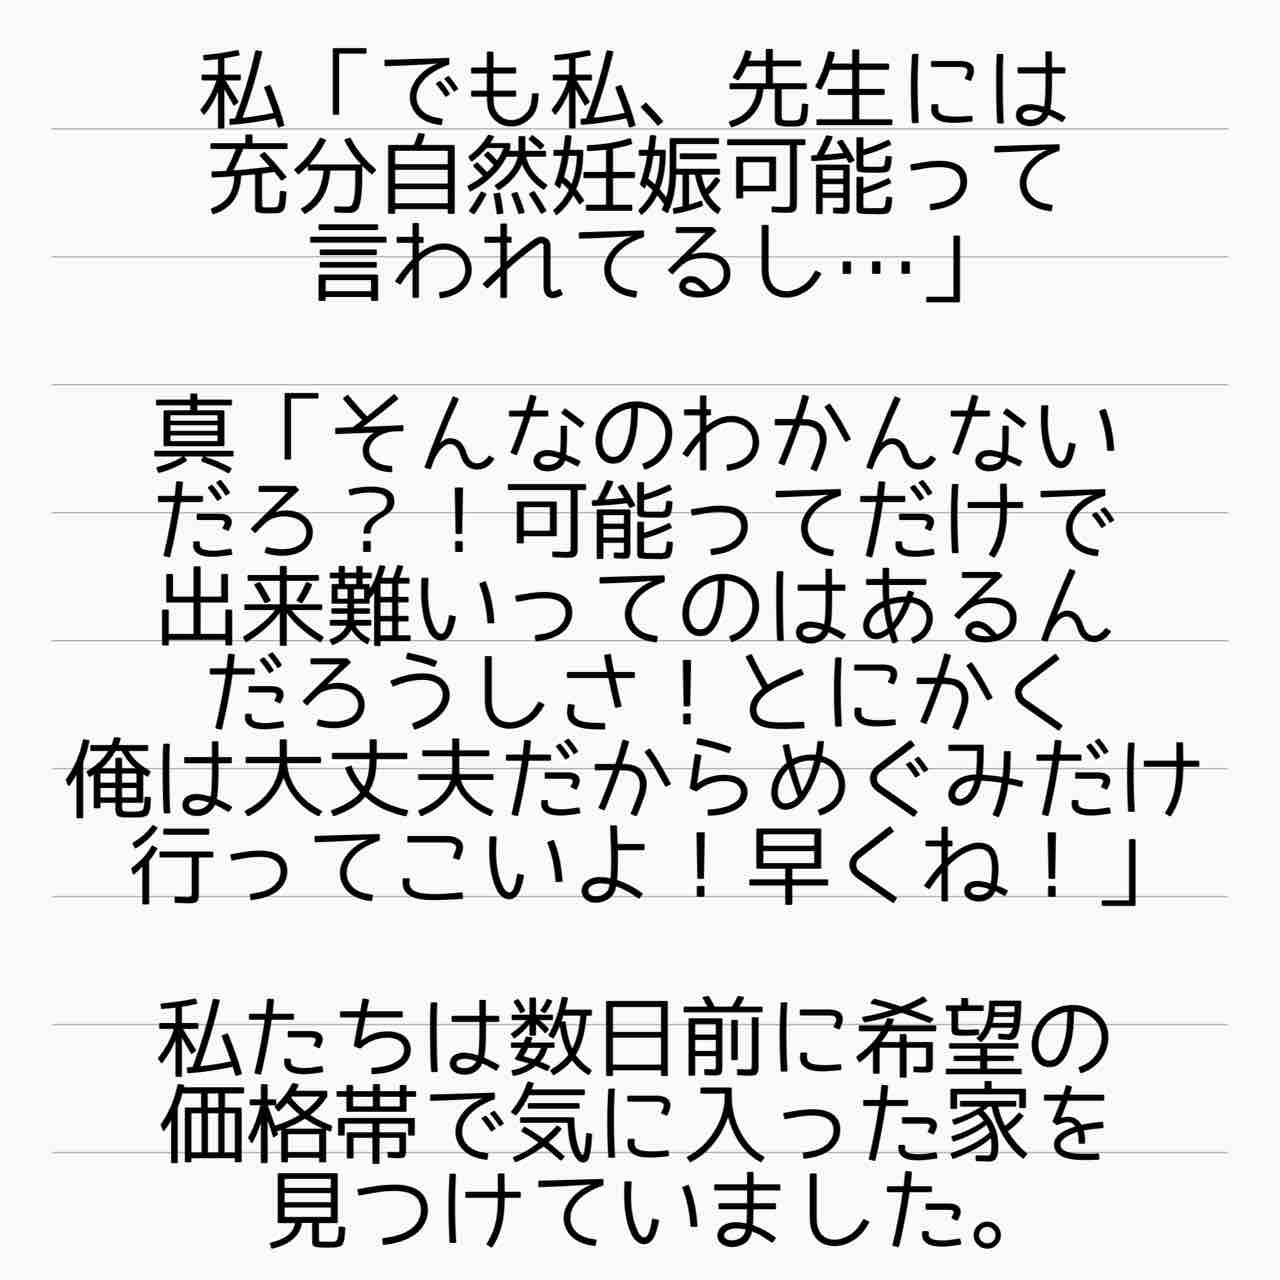 私「でも私、先生には
充分自然妊娠可能って
言われてるし…」
真「そんなのわかんない
だろ？！可能ってだけで
出来難いってのはあるん
だろうしさ！とにかく
俺は大丈夫だからめぐみだけ
行ってこいよ！早くね！」
私たちは数日前に希望の
価格帯で気に入った家を
見つけていました。